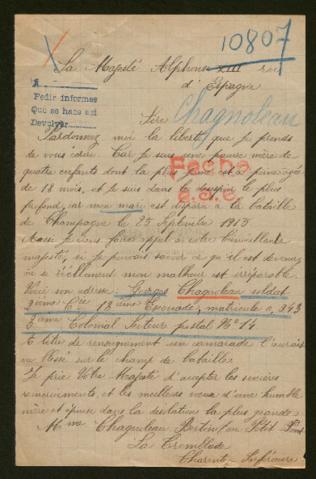 10807
Sa Majesté Alphonse XIII roi
d'Espagne
A
Pedir informes
Que se hace así
Devolver
Sire
Chagnoleau
Pardonnez moi la liberté que je prends
de vous écrire. Car je suis une pauvre mère de
quatre enfants dont la plus jeune est âgée
de 18 mois, et je suis dans le désespoir le plus
profond, car mon mari est disparu à la bataille
de Champagne le 25 Septembre 1915
Fecha
s.s.e.
Aussi je viens faire appel à votre bienveillante
majesté, si je pouvais savoir ce qu'il est devenu
ou si réellement mon malheur est irréparable.
Voici son adresse: Chagnoleau soldat
2ème Cie 13ème Escouade, matricule 0,343
Colonial Secteur postal No 14
A titre de renseignement un camarade l'aurait
vu blessé sur le champ de bataille.
Je prie Votre Majesté d'accepter les sincères
remerciements, et les meilleurs vœux d'une humble
mère et épouse dans la désolation la plus grande.
Mme Chagnoleau Bertin
La Tremblade
Charente-Inférieure